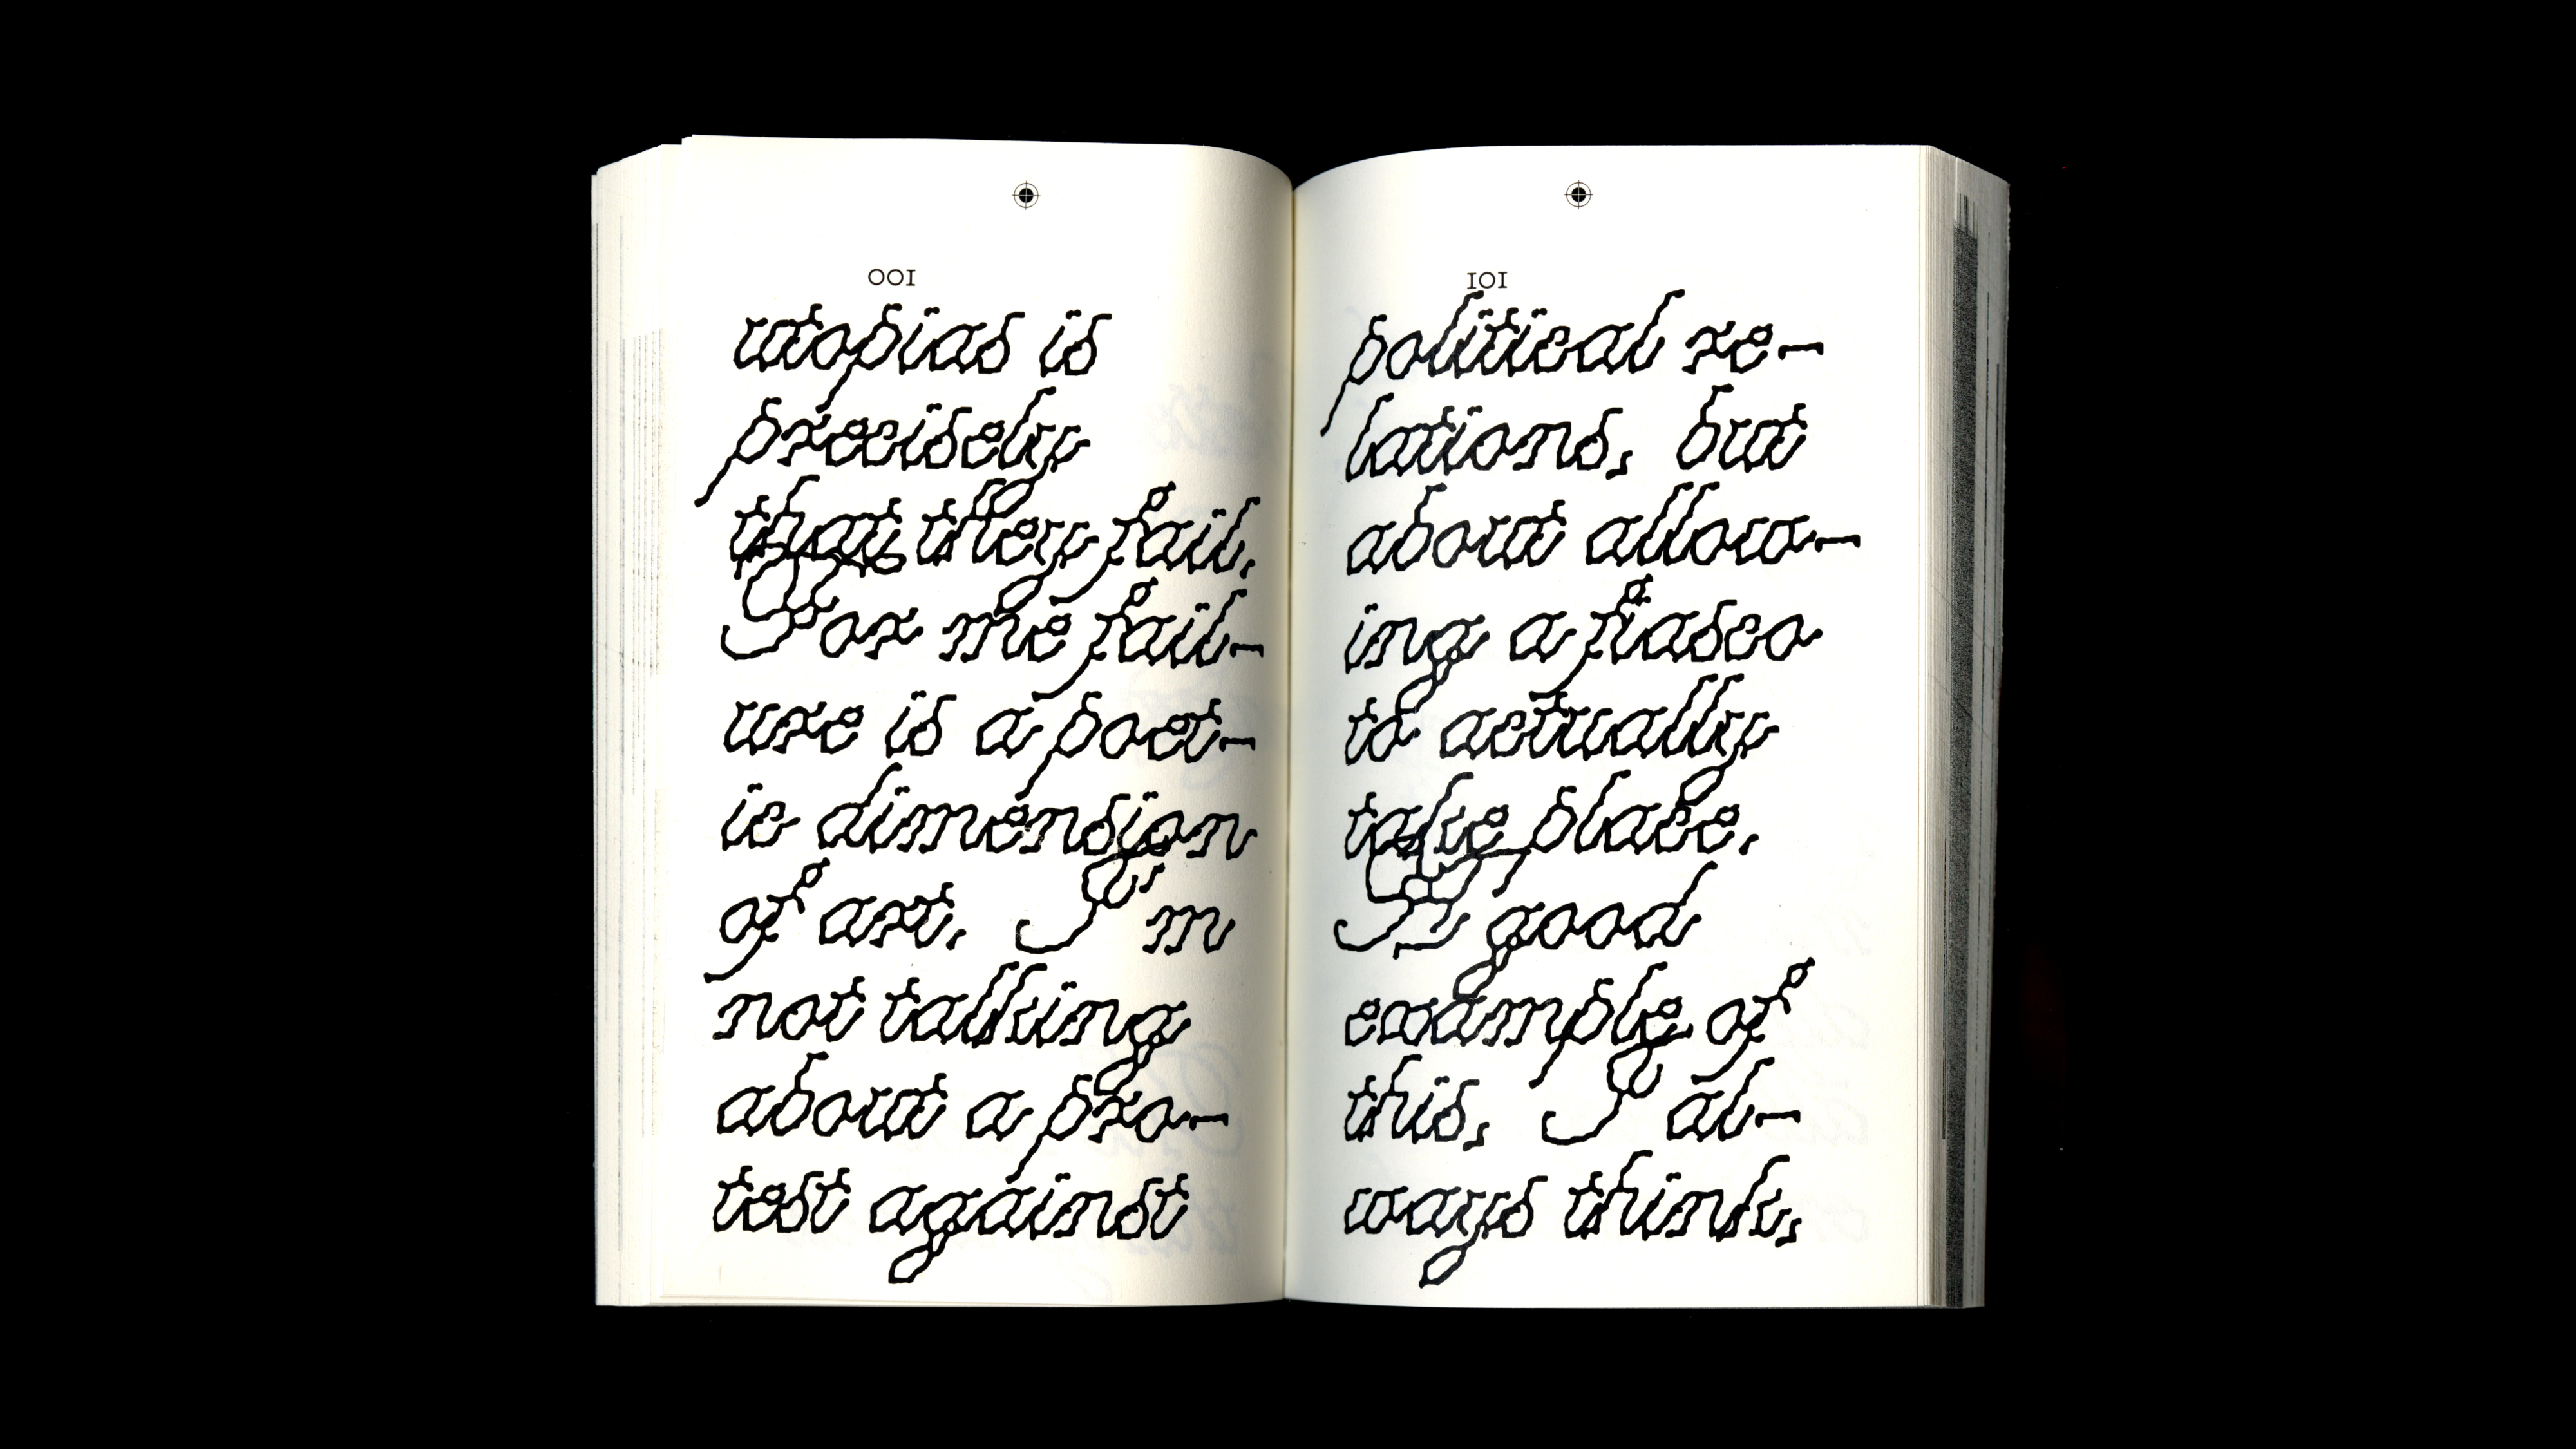 001
utopias is
precisely
that they fail.
For me fail-
ure is a poet-
ic dimension
of art. I'm
not talking
about a pro-
test against
101
political re-
lations, but
about allow-
ing a fiasco
to actually
take place.
A good
example of
this, I al-
ways think,